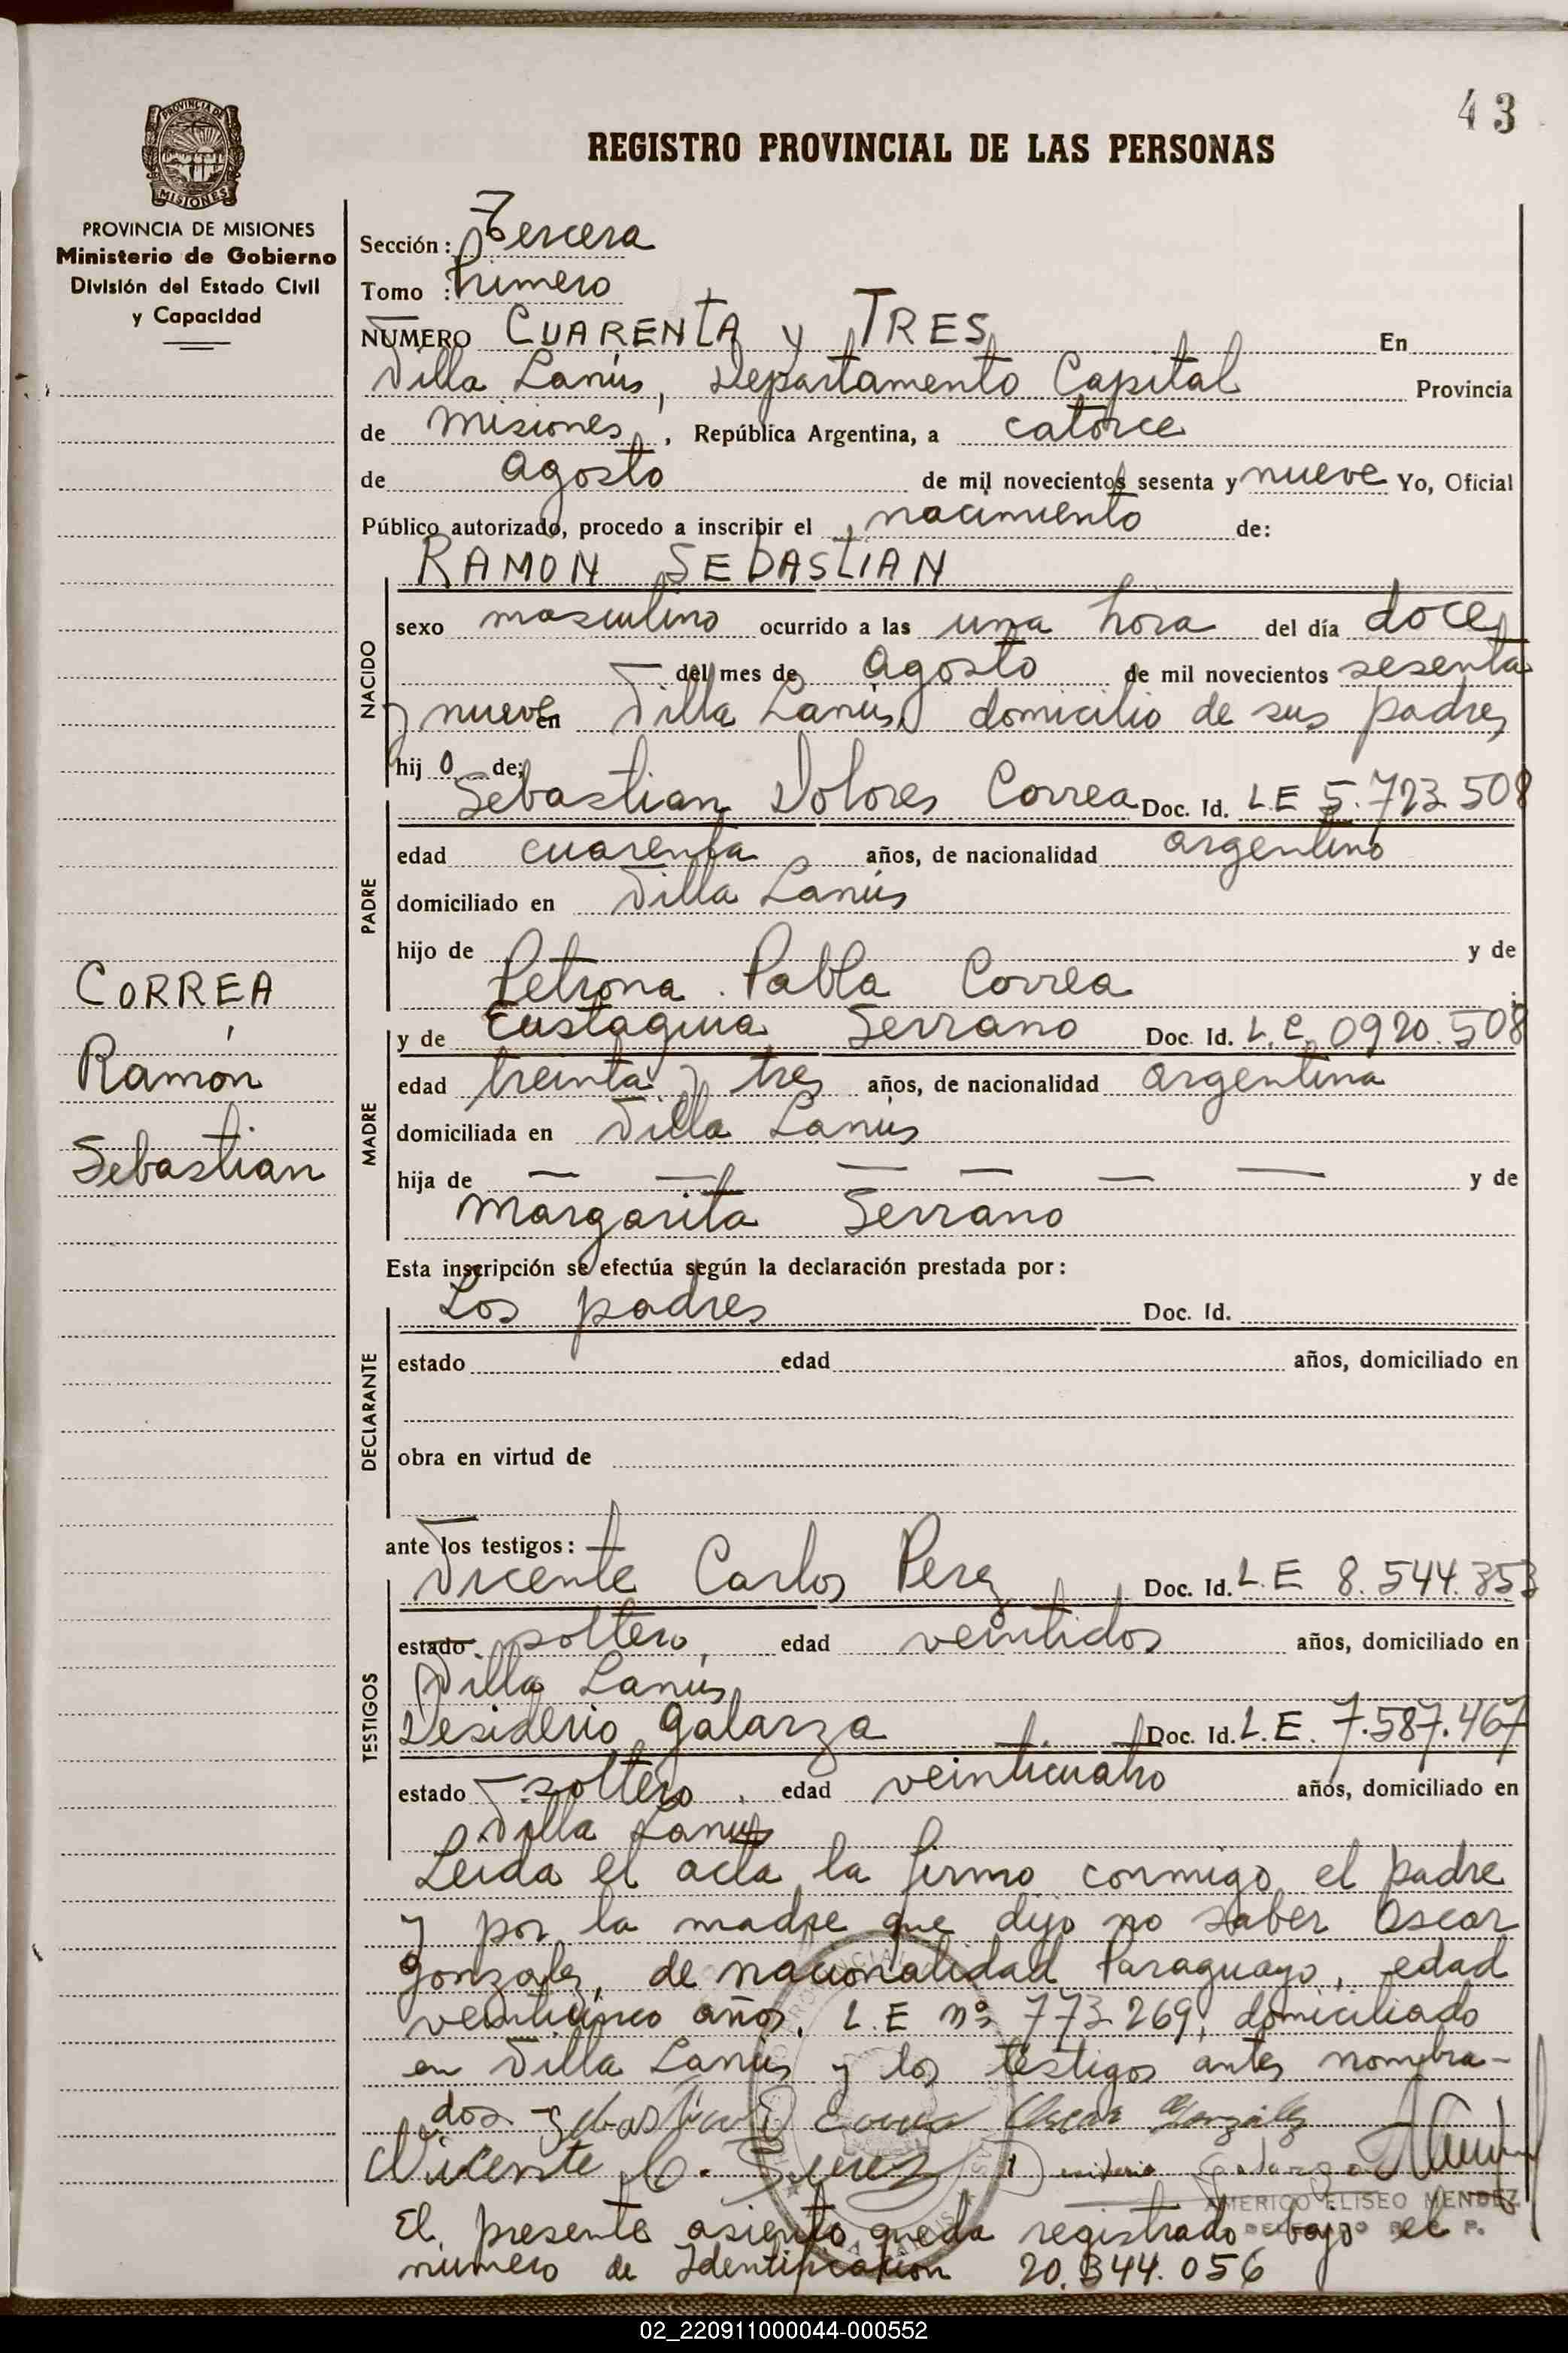 43
REGISTRO PROVINCIAL DE LAS PERSONAS
PROVINCIA DE MISIONES
PROVINCIA DE MISIONES
Ministerio de Gobierno
División del Estado Civil
y Capacidad
CORREA
Ramón
Sebastian
Sección: Tercera
Tomo : Primero
NUMERO CUARENTA y TRES En
Villa Lanús, Departamento Capital Provincia
de Misiones, República Argentina, a catorce
de Agosto de mil novecientos sesenta y nueve Yo, Oficial
Público autorizado, procedo a inscribir el nacimiento de:
RAMON SEBASTIAN
NACIDO
sexo masculino ocurrido a las una hora del día doce
del mes de Agosto de mil novecientos sesenta
y nueve en Villa Lanús, domicilio de sus padres
hij o de;
Sebastian Dolores Correa Doc. Id. L.E 5.723.508
PADRE
edad cuarenta años, de nacionalidad argentino
domiciliado en Villa Lanús
hijo de y de
Petrona Pabla Correa
y de Eustaquia Serrano Doc. Id. L.C. 0920.508
MADRE
edad treinta y tres años, de nacionalidad argentina
domiciliada en Villa Lanús
hija de — — — — — — y de
Margarita Serrano
Esta inscripción se efectúa según la declaración prestada por:
Los padres Doc. Id.
DECLARANTE
estado edad años, domiciliado en
obra en virtud de
ante los testigos:
Vicente Carlos Perez Doc. Id. L.E 8.544.353
TESTIGOS
estado soltero edad veintidos años, domiciliado en
Villa Lanús
Desiderio Galarza Doc. Id. L.E. 7.587.467
estado soltero edad veinticuatro años, domiciliado en
Villa Lanús
Leida el acta la firmo conmigo el padre
y por la madre que dijo no saber Oscar
Gonzalez, de nacionalidad Paraguayo, edad
veinticinco años, L.E nº 773.269, domiciliado
en Villa Lanús y los testigos antes nombra-
dos Sebastian D Correa Oscar Gonzalez
Vicente C. Perez Desiderio Galarza
AMERICO ELISEO MENDEZ
El presente asiento queda registrado bajo el
número de Identificación 20.344.056
02_220911000044-000552